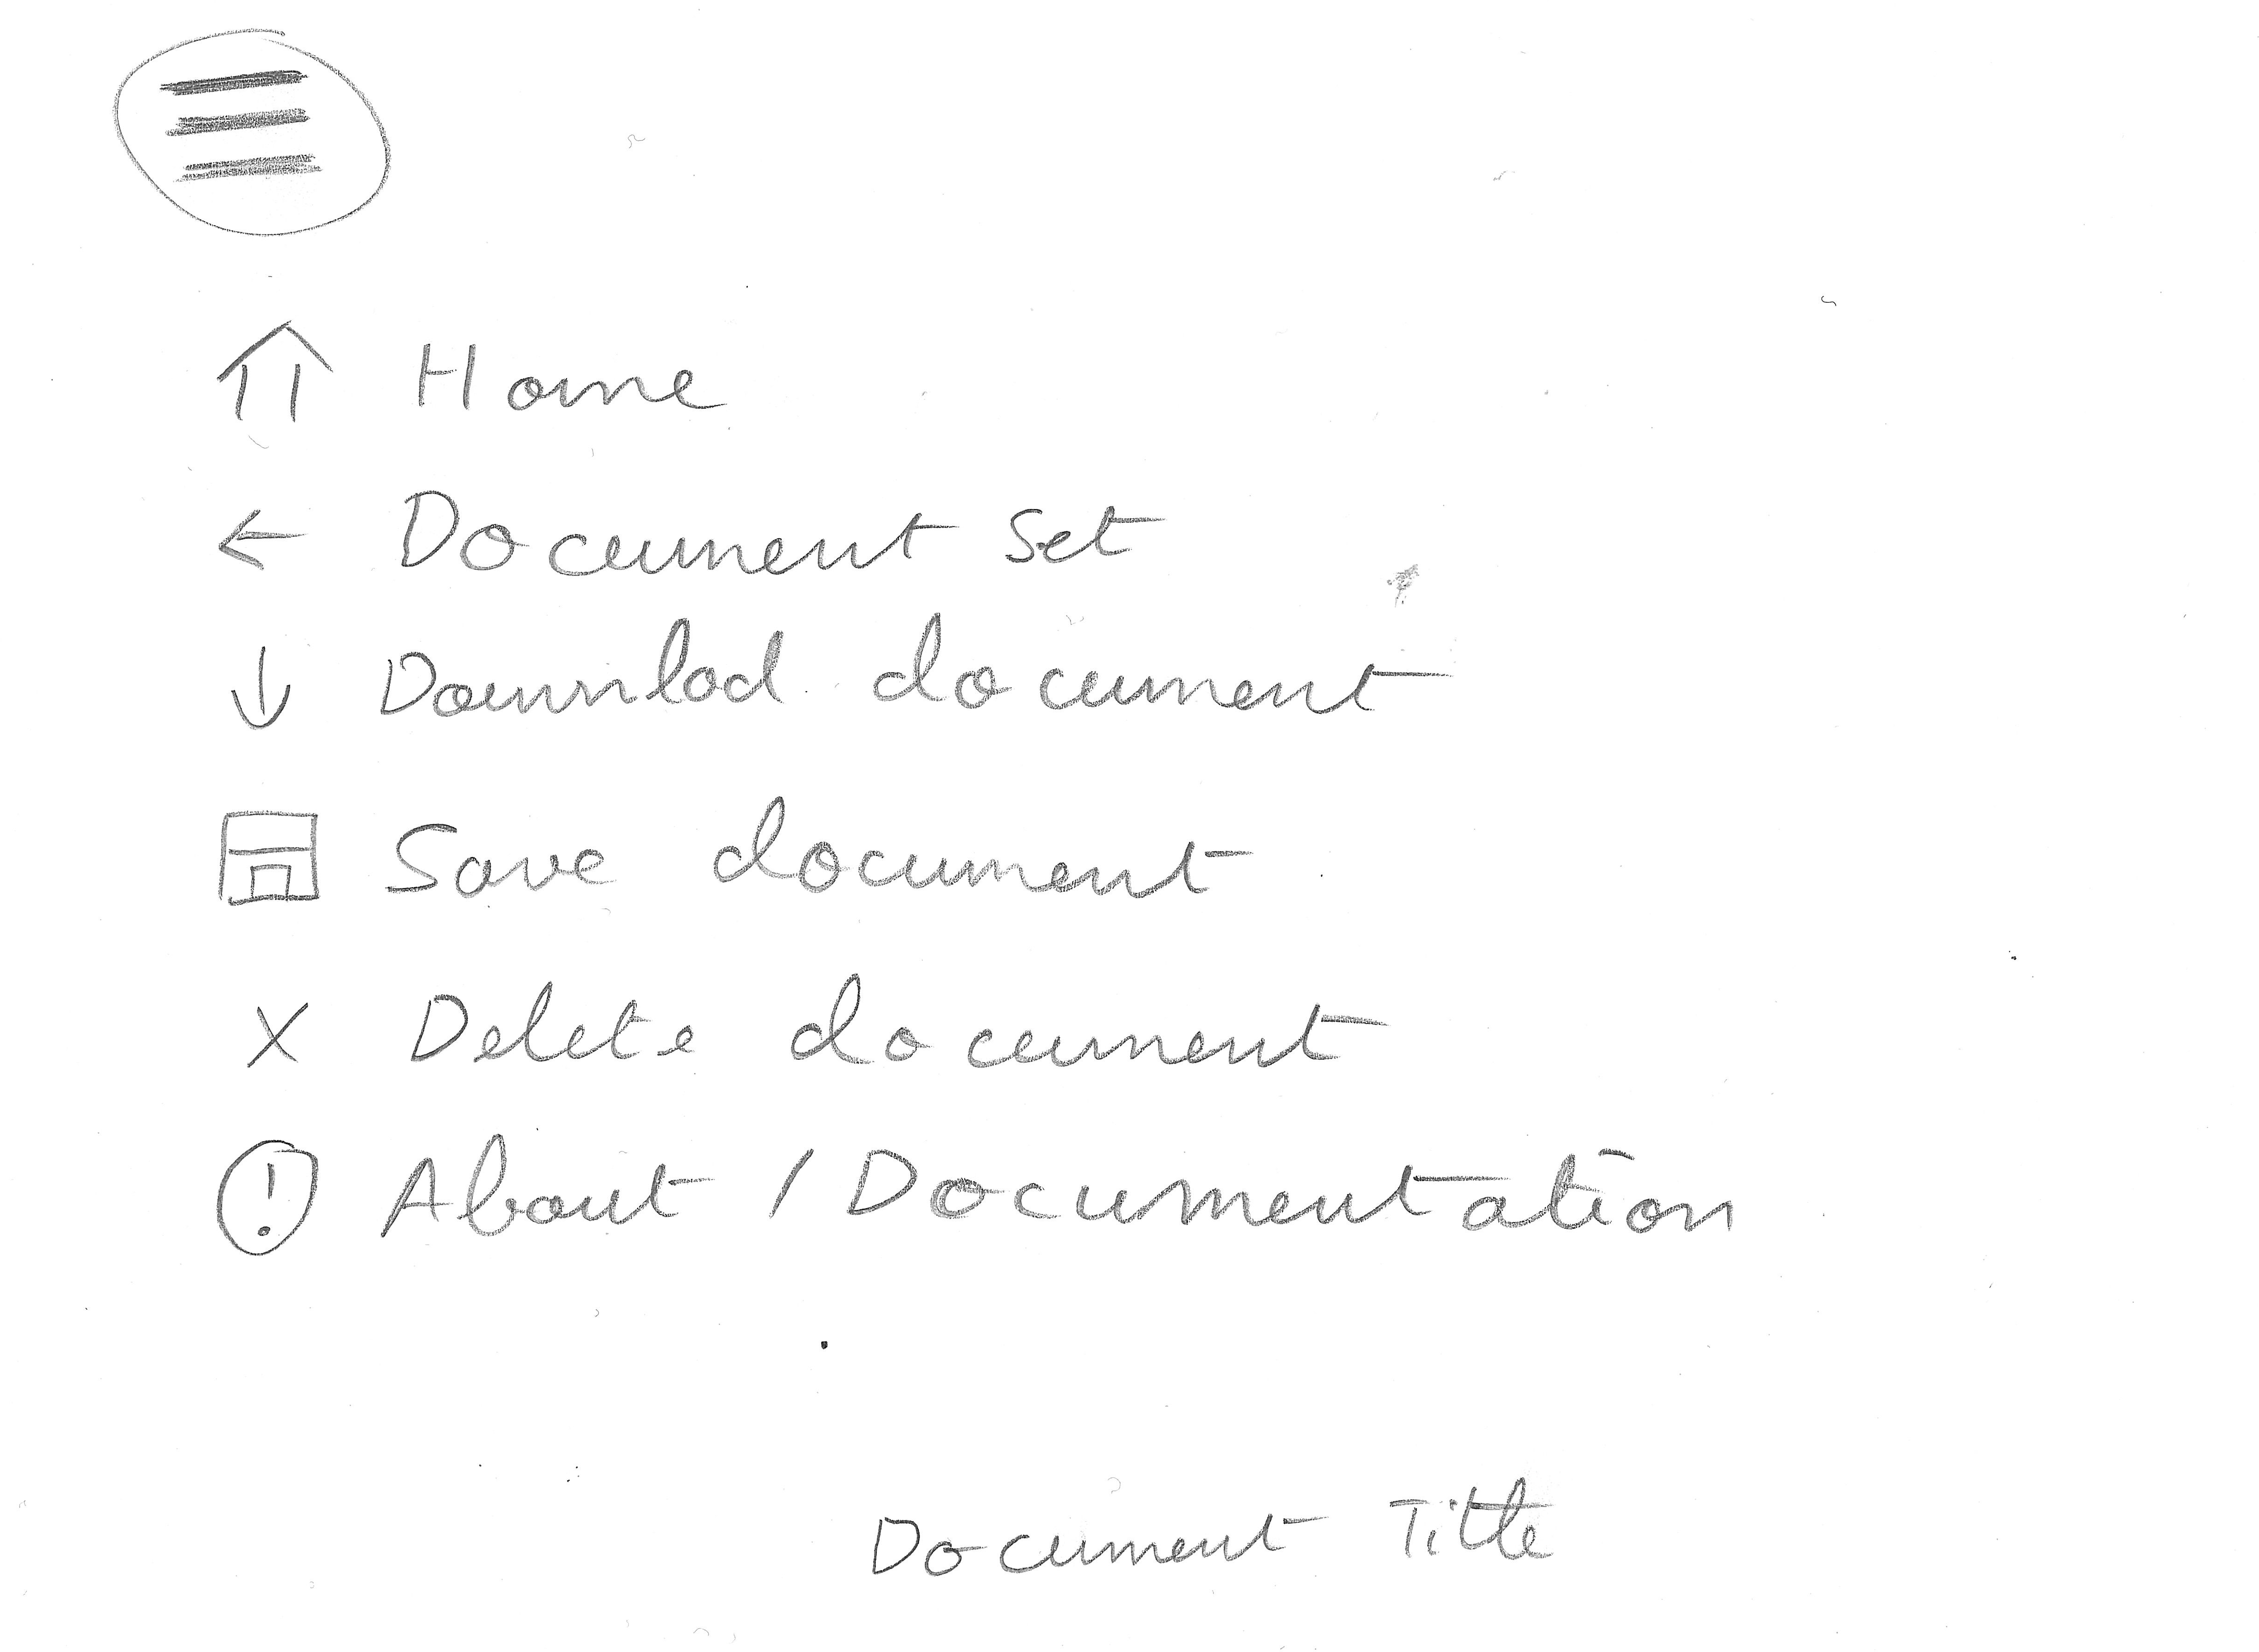 Home
← Document Set
↓ Downlod document
Save document
X Delete document
! About / Documentation
Document Title